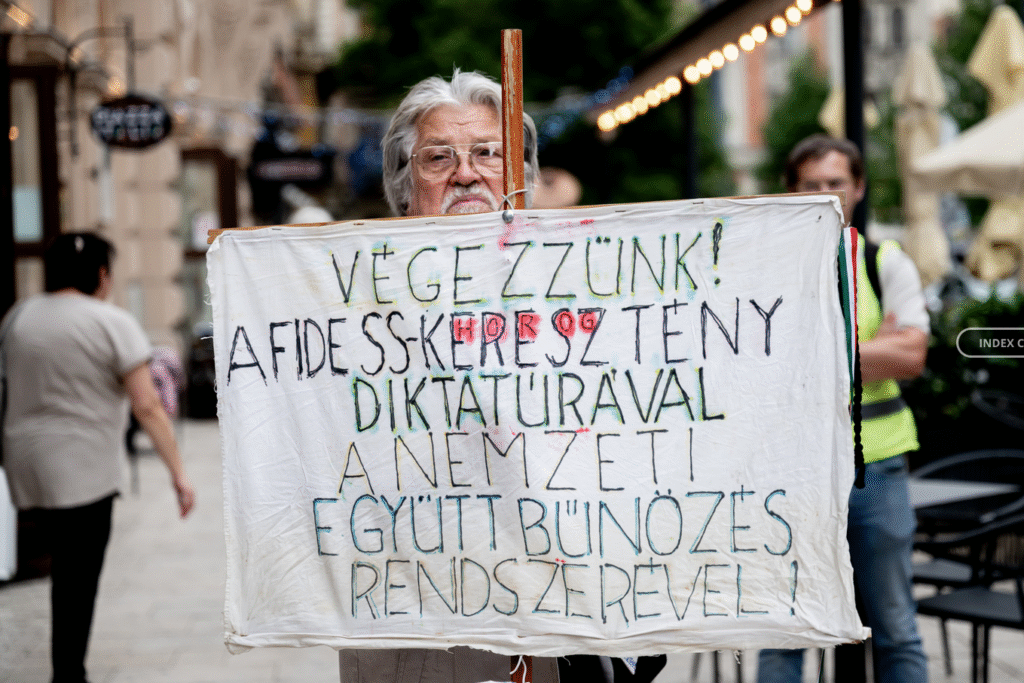 VÉGEZZÜNK!
A FIDESS-KERESZTÉNY
HOROG
DIKTATÚRÁVAL
A NEMZETI
EGYÜTT BŰNÖZÉS
RENDSZERÉVEL!
INDEX C